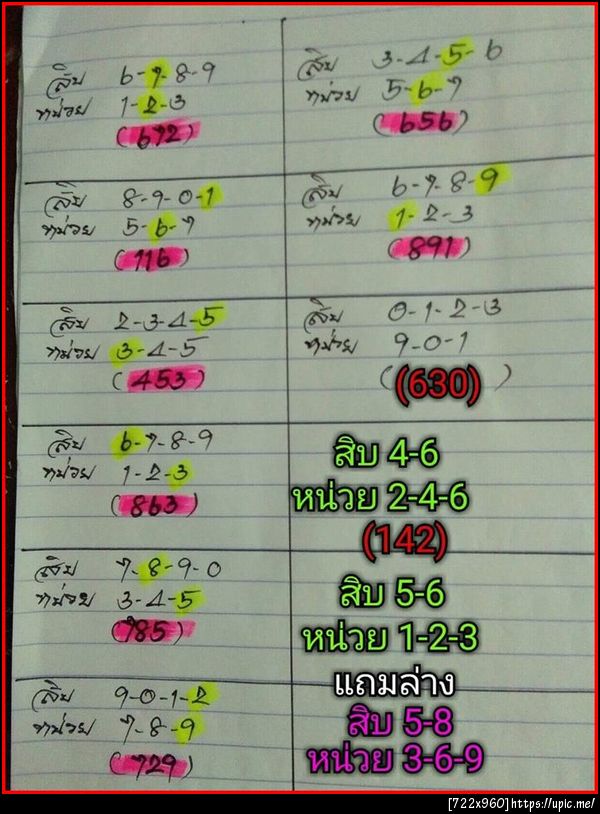 สิบ 6-7-8-9
หน่วย 1-2-3
(672)
สิบ 8-9-0-1
หน่วย 5-6-7
(116)
สิบ 2-3-4-5
หน่วย 3-4-5
(453)
สิบ 6-7-8-9
หน่วย 1-2-3
(863)
สิบ 7-8-9-0
หน่วย 3-4-5
(785)
สิบ 9-0-1-2
หน่วย 7-8-9
(729)
สิบ 3-4-5-6
หน่วย 5-6-7
(656)
สิบ 6-7-8-9
หน่วย 1-2-3
(891)
สิบ 0-1-2-3
หน่วย 9-0-1
((630))
สิบ 4-6
หน่วย 2-4-6
(142)
สิบ 5-6
หน่วย 1-2-3
แถมล่าง
สิบ 5-8
หน่วย 3-6-9
[722x960]https://upic.me/